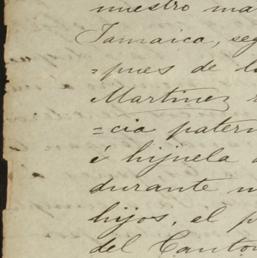 nuestro ma
Jamaica, seg
=pues de l
Martinez
=cia patern
é hijuela
durante
hijos, el p
del Canton